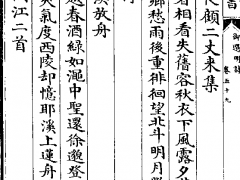 御選明詩 卷五十九
顧二丈來集
者相看失舊容秋衣下風露夕
鄉愁雨後重徘徊望北斗明月
溪放舟
越春酒綠如澠中聖還徐邈登
天氣度西陵却憶耶溪上蓮舟
江二首